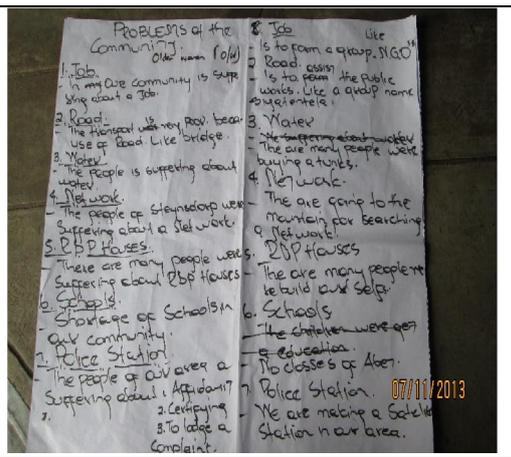 PROBLEMS of the
Community.
Older women (old)
1. Job.
- In my Our community is suffe
ring about a Job.
2. Road.
- The transport is very poor. beca
use of Road Like bridge.
3. Water
- The people is suffering about
water.
4. Network.
- The people of Steynsdorp were
Suffering about a Network.
5. RDP Houses.
- There are many people were
Suffering about RDP Houses
6. Schools.
- Shortage of Schools in
our community.
7. Police Station.
- The people of our area a
Suffering about 1. Affidavit
2. Certifying
3. To lodge a
Complaint.
8. Job
Like
- Is to form a group. NGO's
2. Road. assist
- Is to the public
works. Like a group name
Siyatentela.
3. Water
- We suffering about water
- The are many people were
buying a tanks.
4. Network.
- The are going to the
mountain for searching
a Network.
5. RDP Houses
- The are many people we
rebuild our self.
6. Schools
- The children were get
a education.
- No classes of Abet.
7. Police Station.
- We are making a Satelite
Station in our area.
07/11/2013